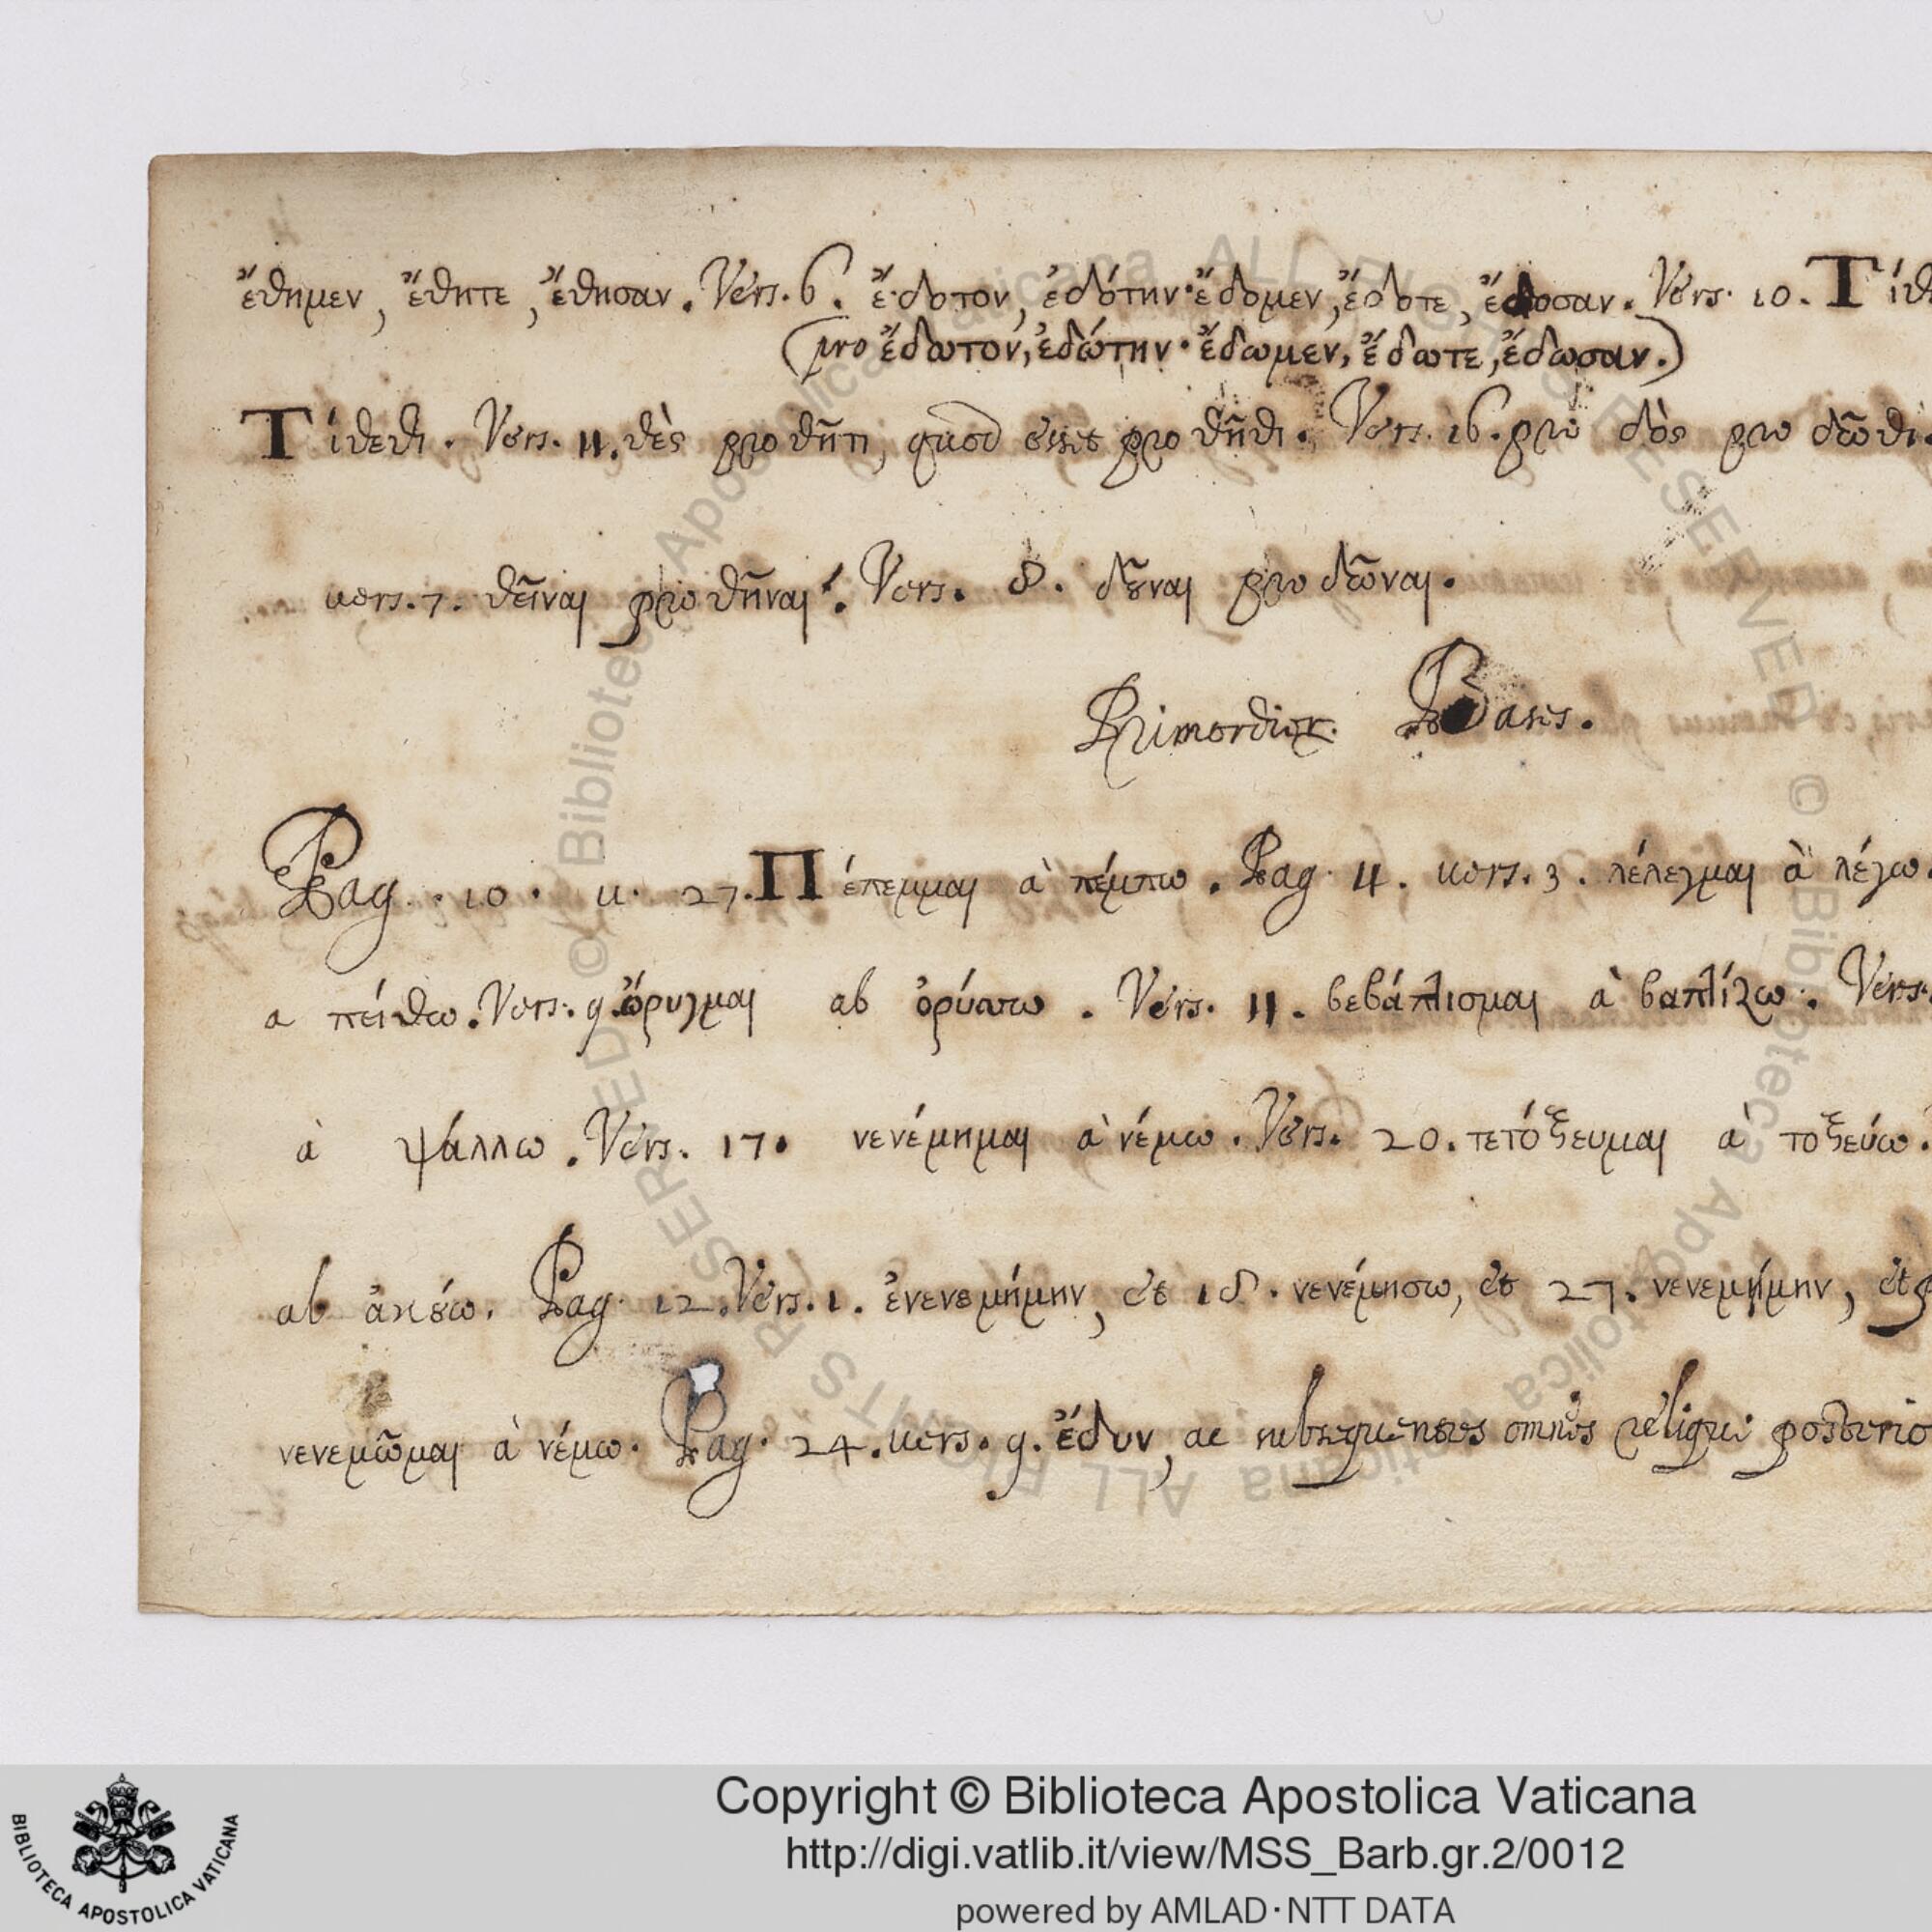 ἔθημεν, ἔθητε, ἔθησαν. Vers. 6. ἔδοτον, ἐδότην· ἔδομεν, ἔδοτε, ἔδοσαν. Vers. 10. Τίθ
(pro ἔδωτον, ἐδώτην· ἔδωμεν, ἔδωτε, ἔδωσαν.)
Τίθεθι. Vers. 11. θὲς pro θῆτι, quod esset pro θῆθι. Vers. 16. pro δὸς pro δῶθι.
vers. 7. θεῖναι pro θῆναι. Vers. 8. δοῦναι pro δῶναι.
Primordiæ Basis.
Pag. 10. u. 27. Πέπεμμαι à πέμπω. Pag. 11. vers. 3. λέλεγμαι à λέγω.
a πείθω. Vers. 9. ὤρυγμαι ab ὀρύττω. Vers. 11. βεβάπτισμαι à βαπτίζω. Vers.
à ψάλλω. Vers. 17. νενέμημαι à νέμω. Vers. 20. τετόξευμαι à τοξεύω.
ab ἀκούω. Pag. 12. Vers. 1. ἐνενεμήμην, et 18. νενέμησω, et 27. νενεμήμην, et
νενεμῶμαι à νέμω. Pag. 24. vers. 9. ἔδυν, ac subsequentes omnes reliqui posterio
Copyright © Biblioteca Apostolica Vaticana
http://digi.vatlib.it/view/MSS_Barb.gr.2/0012
powered by AMLAD·NTT DATA
BIBLIOTECA APOSTOLICA VATICANA